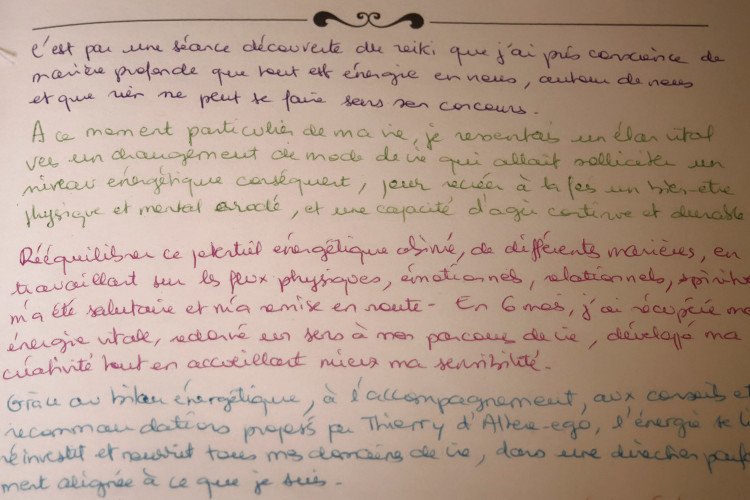 C'est par une séance découverte du reiki que j'ai pris conscience de
manière profonde que tout est énergie en nous, autour de nous
et que rien ne peut se faire sans son concours.
A ce moment particulier de ma vie, je ressentais un élan vital
vers un changement de mode de vie qui allait solliciter un
niveau énergétique conséquent, pour recréer à la fois un bien-être
physique et mental érodé, et une capacité d'agir continue et durable
Rééquilibrer ce potentiel énergétique abîmé, de différentes manières, en
travaillant sur les flux physiques, émotionnels, relationnels, spiritu
m'a été salutaire et m'a remise en route - En 6 mois, j'ai récupérée
énergie vitale, redonné un sens à mon parcours de vie, développé ma
créativité tout en accueillant mieux ma sensibilité.
Grâce au bilan énergétique, à l'accompagnement, aux conseils et
recommandations proposés par Thierry d'Altere-ego, l'énergie se
réinvestit et nourrit tous mes domaines de vie, dans une direction
ment alignée à ce que je suis.